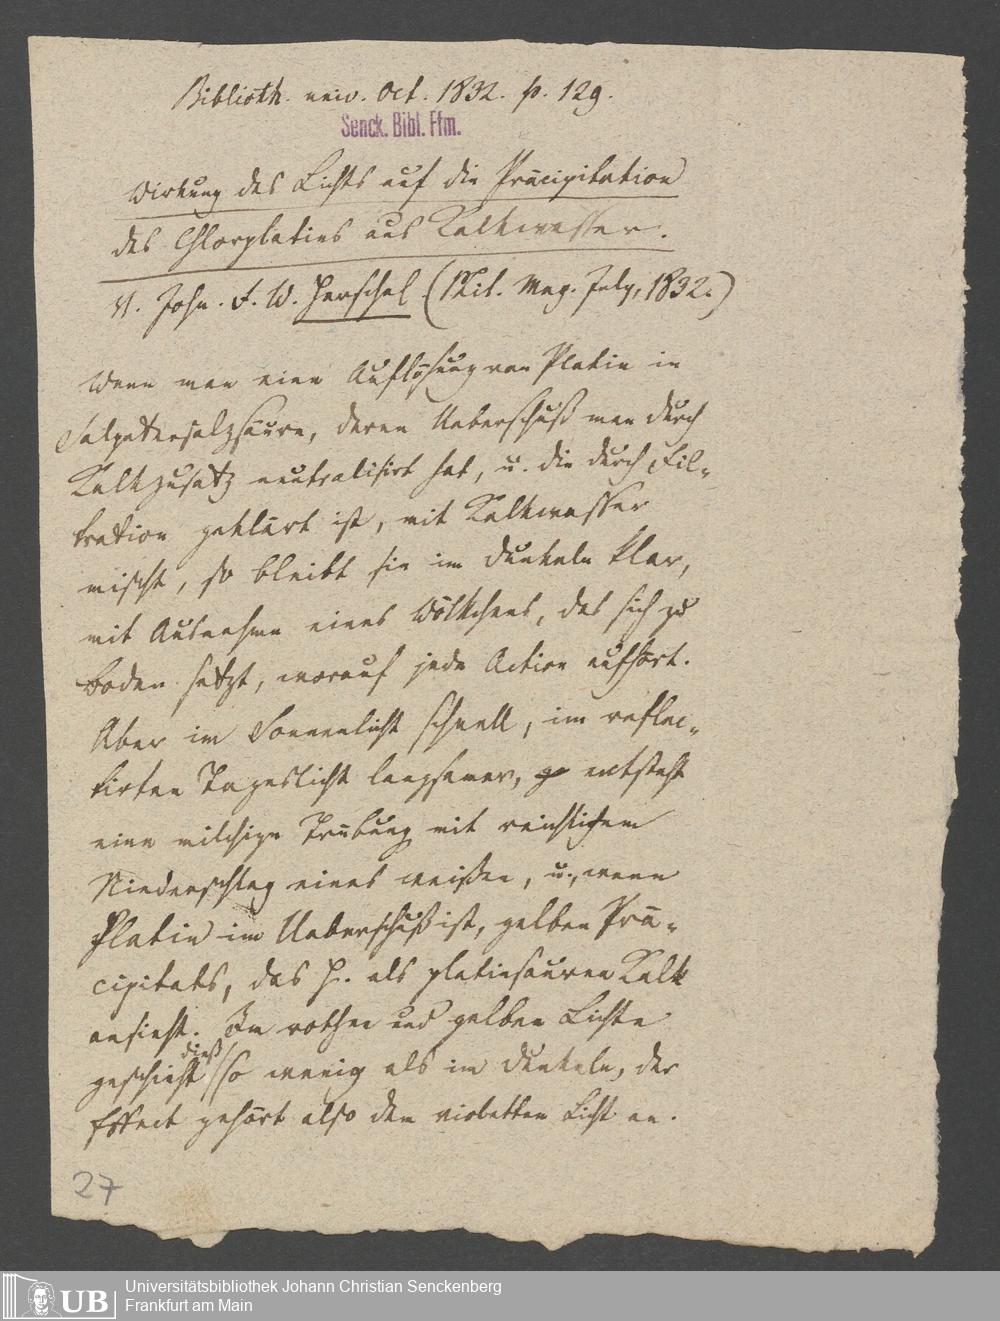 Biblioth. univ. Oct. 1832. p. 129.
Senck. Bibl. Ffm.
Wirkung des Lichts auf die Präcipitation
des Chlorplatins aus Kalkwasser.
V. John. F. W. Herschel (Phil. Mag. July, 1832.)
Wenn man eine Auflösung von Platin in
Salpetersalzsäure, deren Ueberschuß man durch
Kalkzusatz neutralisirt hat, u. die durch Fil-
tration geklärt ist, mit Kalkwasser
mischt, so bleibt sie im Dunkeln klar,
mit Ausnahme eines Wölkchens, das sich zu
Boden setzt, worauf jede Action aufhört.
Aber im Sonnenlicht schnell, im reflec-
tirten Tageslicht langsamer, entsteht
eine milchige Trübung mit reichlichem
Niederschlag eines weißen, u., wenn
Platin im Ueberschuß ist, gelben Prä-
cipitats, das H. als platinsauren Kalk
ansieht. Im rothen und gelben Lichte
geschieht dieß so wenig als im Dunkeln, der
Effect gehört also dem violetten Licht an.
27
UB
Universitätsbibliothek Johann Christian Senckenberg
Frankfurt am Main